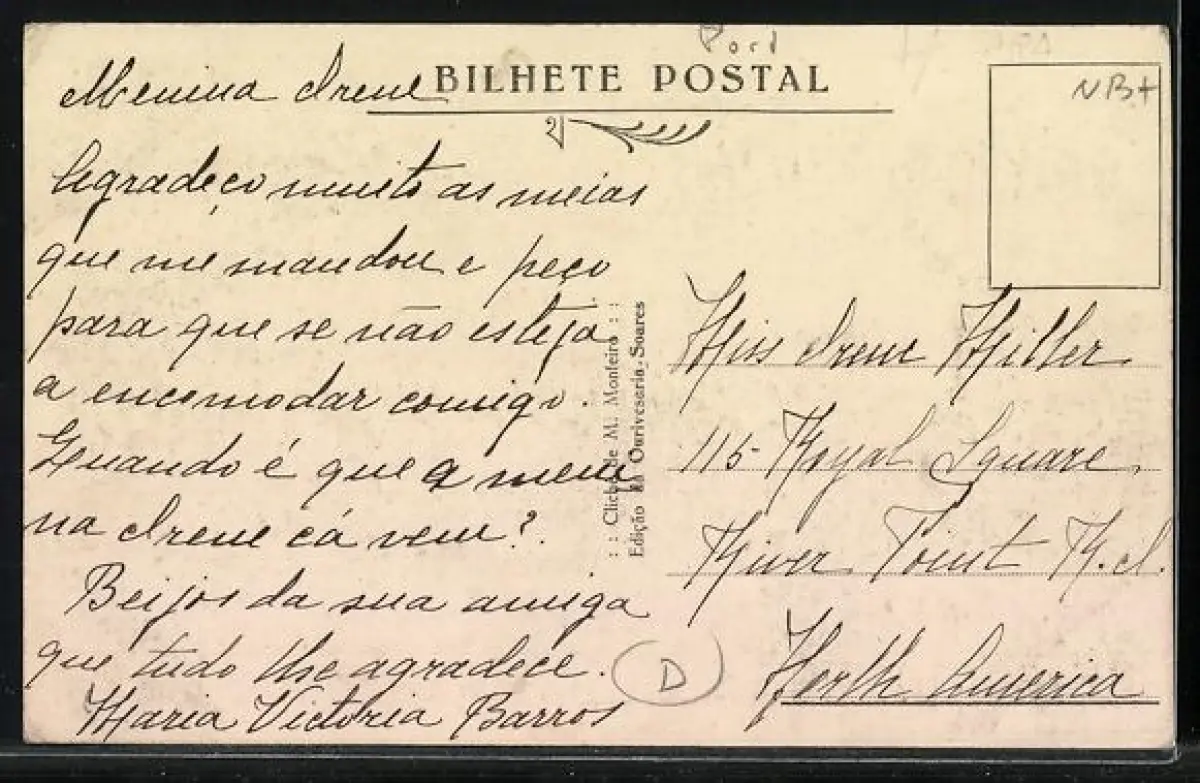 Pord
BILHETE POSTAL
NB+
Menina Irene
Agradeço muito as meias
que me mandou e peço
para que se não esteja
a encomodar comigo.
Quando é que a meni
na Irene cá vem?
Beijos da sua amiga
que tudo lhe agradece.
Maria Victoria Barros
D
: : Cliché de M. Monteiro : :
Edição da Ourivesaria Soares
Miss Irene Miller
115- Royal Square,
River Point R.I.
North America